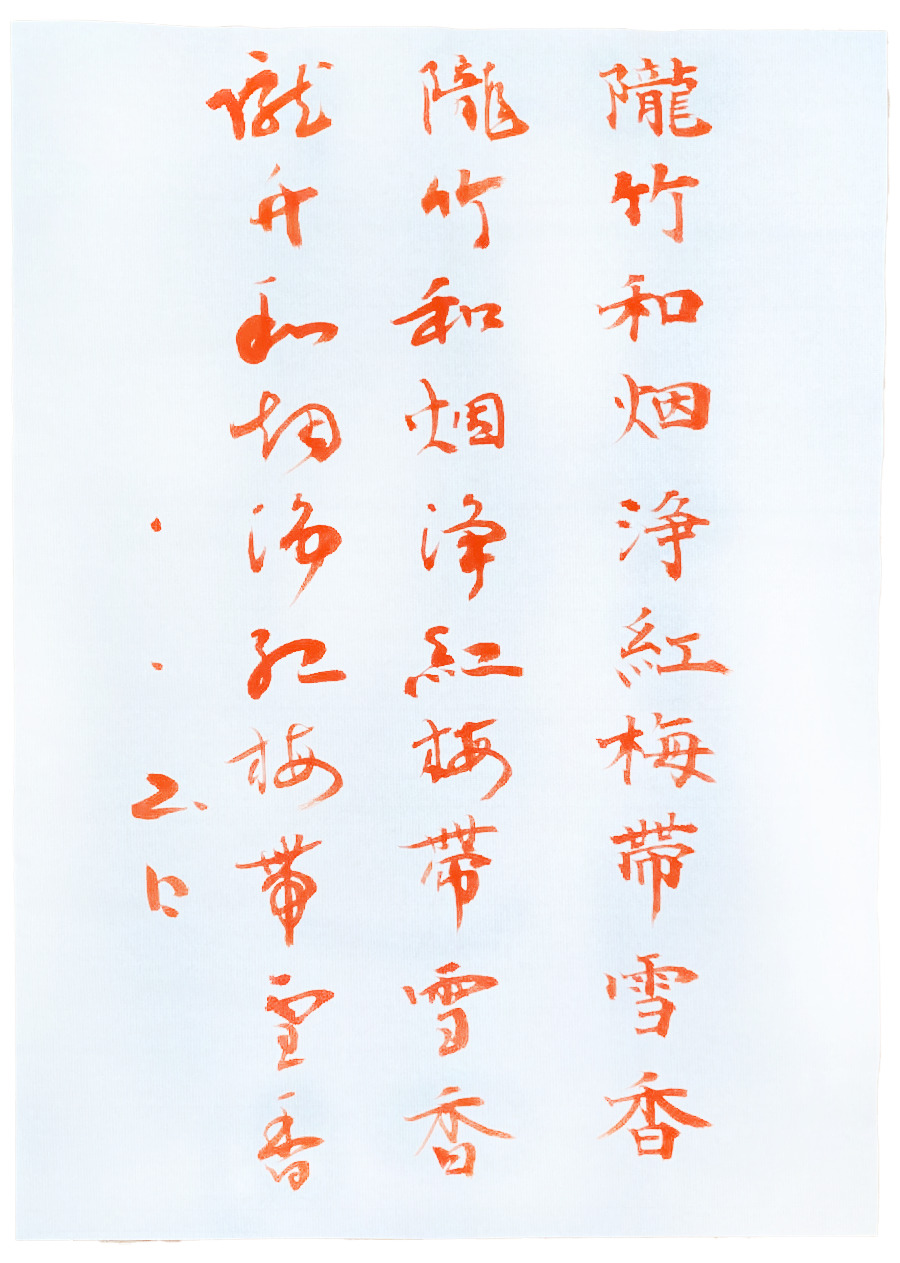 隴竹和烟浄紅梅帯雪香
隴竹和烟浄紅梅帯雪香
隴竹和烟浄紅梅帯雪香